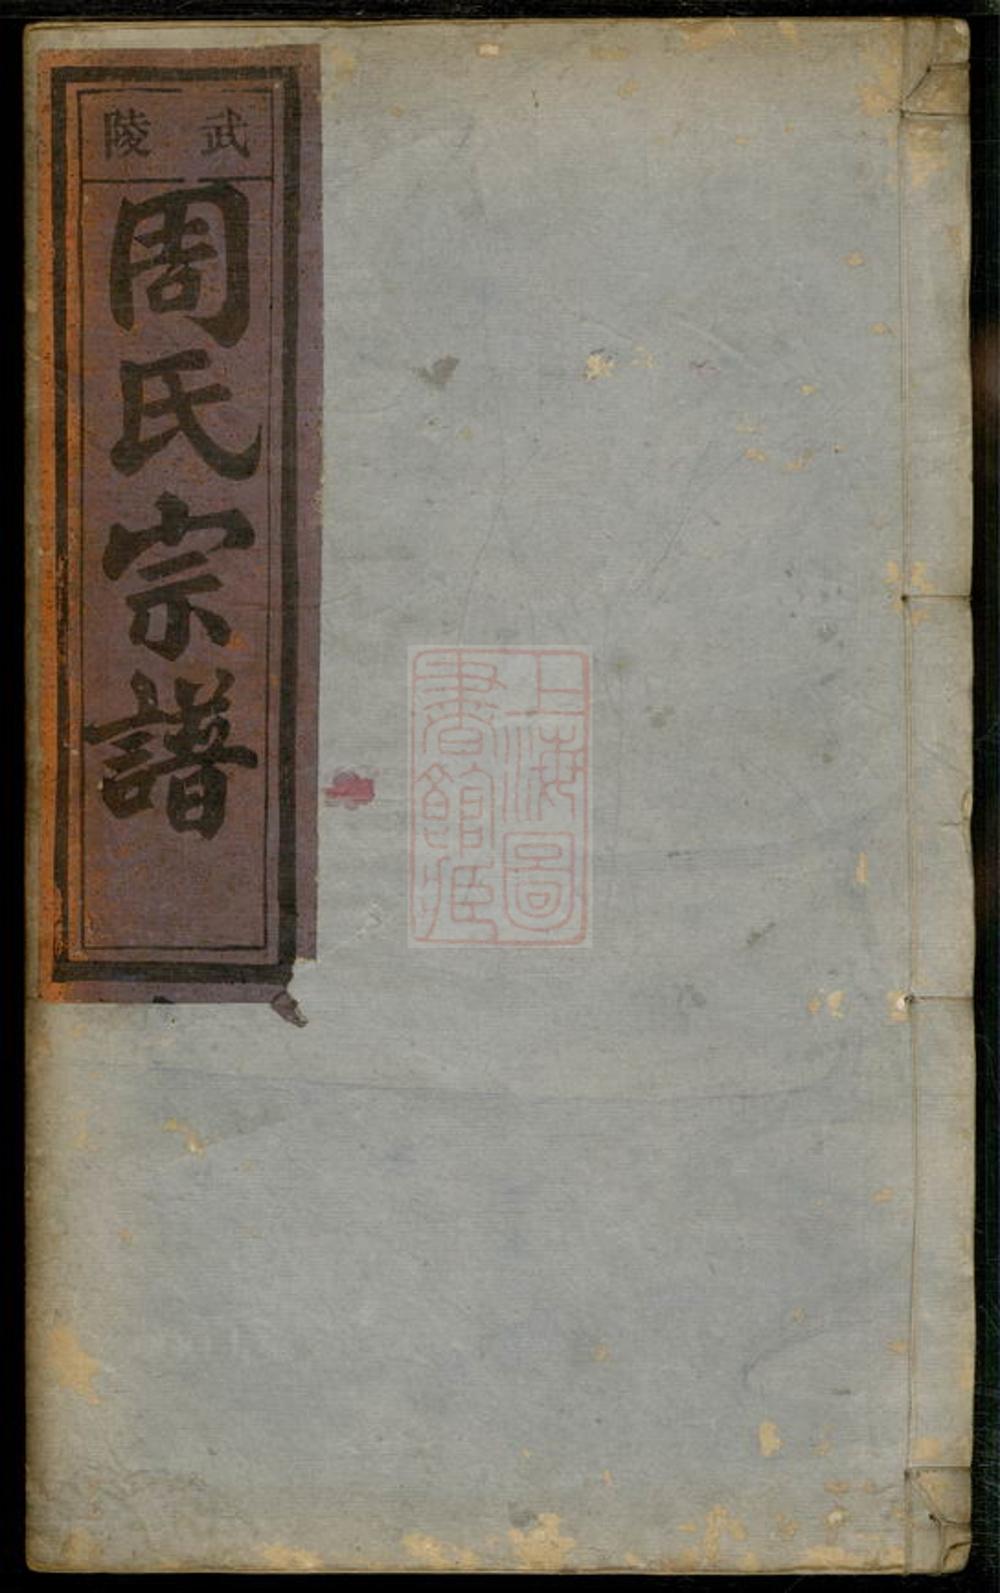 武陵
周氏宗譜
上海圖
書館藏